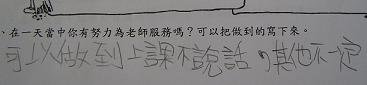 、在一天當中你有努力為老師服務嗎？可以把做到的寫下來。
可以做到上課不說話，其他不一定